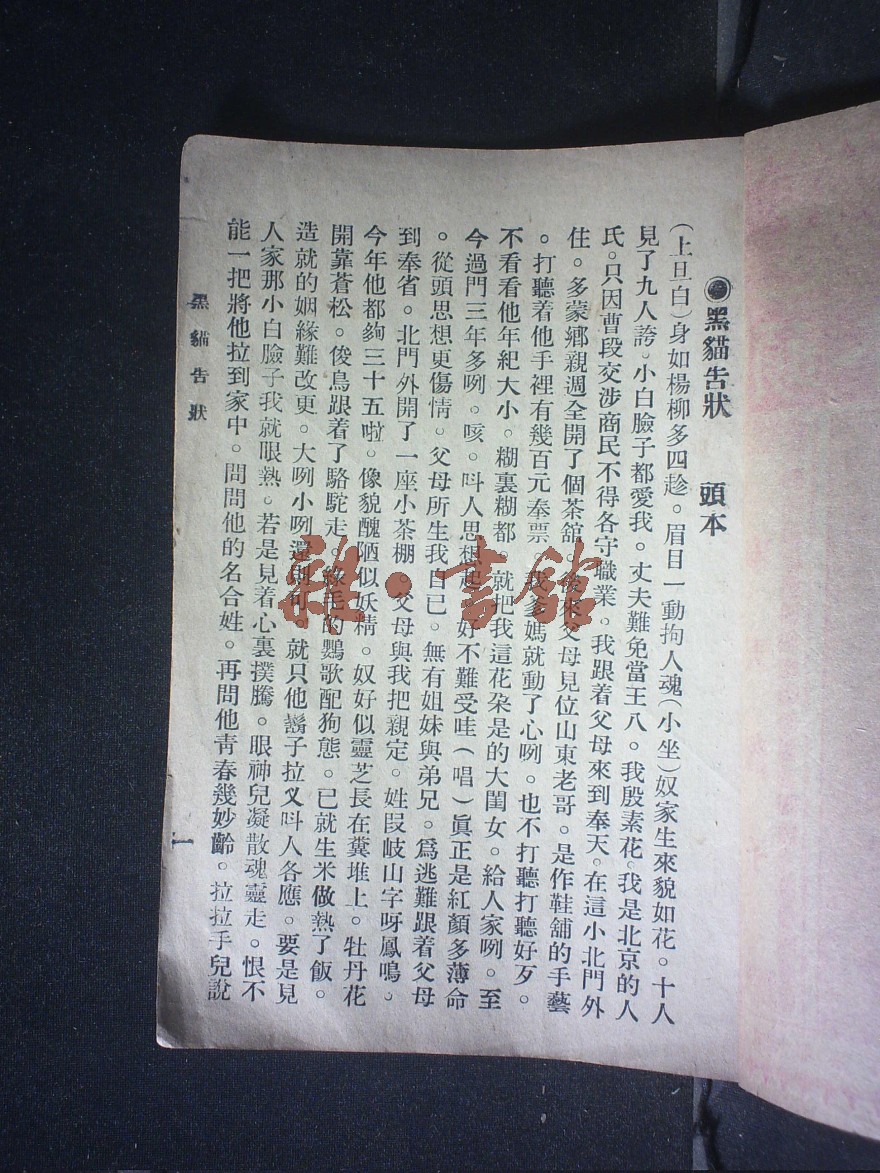 黑貓告狀　頭本
(上旦白)身如楊柳多四趁。眉目一動拘人魂(小坐)奴家生來貌如花。十人
見了九人誇。小白臉子都愛我。丈夫難免當王八。我殷素花。我是北京的人
氏。只因曹段交涉商民不得各守職業。我跟着父母來到奉天。在這小北門外
住。多蒙鄉親週全開了個茶舘。後來父母見位山東老哥。是作鞋舖的手藝
。打聽着他手裡有幾百元奉票。我爹媽就動了心咧。也不打聽打聽好歹。
不看看他年紀大小。糊裏糊都。就把我這花朶是的大閨女。給人家咧。至
今過門三年多咧。咳。呌人思想起 好不難受哇(唱)眞正是紅顏多薄命
。從頭思想更傷情。父母所生我自己。無有姐妹與弟兄。爲逃難跟着父母
到奉省。北門外開了一座小茶棚。父母與我把親定。姓段岐山字呀鳳鳴。
今年他都夠三十五啦。像貌醜陋似妖精。奴好似靈芝長在糞堆上。牡丹花
開靠蒼松。俊鳥跟着了駱駝走。綠毛的鸚歌配狗態。已就生米做熟了飯。
造就的姻緣難改更。大咧小咧還則可。就只他鬍子拉叉呌人各應。要是見
人家那小白臉子我就眼熱。若是見着心裏撲騰。眼神兒凝散魂靈走。恨不
能一把將他拉到家中。問問他的名合姓。再問他靑春幾妙齡。拉拉手兒說
黑貓告狀
一
雜·書館